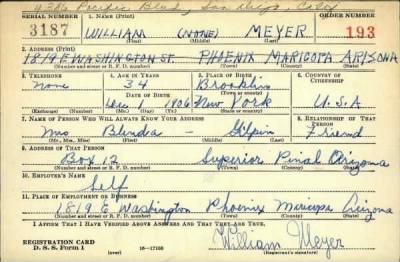 4386 Pacific Blvd, San Diego, Calif
SERIAL NUMBER 1. NAME (Print) ORDER NUMBER
3187 WILLIAM (NONE) MEYER 193
(First) (Middle) (Last)
2. ADDRESS (Print)
1819 E WASHINGTON ST. PHOENIX MARICOPA ARIZONA
(Number and street or R. F. D. number) (Town) (County) (State)
3. TELEPHONE 4. AGE IN YEARS 5. PLACE OF BIRTH 6. COUNTRY OF CITIZENSHIP
None 34 Brooklin
DATE OF BIRTH (Town or county)
1906 New York U.S.A
(Exchange) (Number) (Mo.) (Day) (Yr.) (State or country)
7. NAME OF PERSON WHO WILL ALWAYS KNOW YOUR ADDRESS 8. RELATIONSHIP OF THAT PERSON
Mrs Blenda - Gilpin Friend
(Mr., Mrs., Miss) (First) (Middle) (Last)
9. ADDRESS OF THAT PERSON
Box 12 Superior Pinal Arizona
(Number and street or R. F. D. number) (Town) (County) (State)
10. EMPLOYER'S NAME
Self
11. PLACE OF EMPLOYMENT OR BUSINESS
1819 E Washington Phoenix Maricopa Arizona
(Number and street or R. F. D. number) (Town) (County) (State)
I AFFIRM THAT I HAVE VERIFIED ABOVE ANSWERS AND THAT THEY ARE TRUE.
William Meyer
REGISTRATION CARD
D. S. S. Form 1 (over) 16-17105 (Registrant's signature)